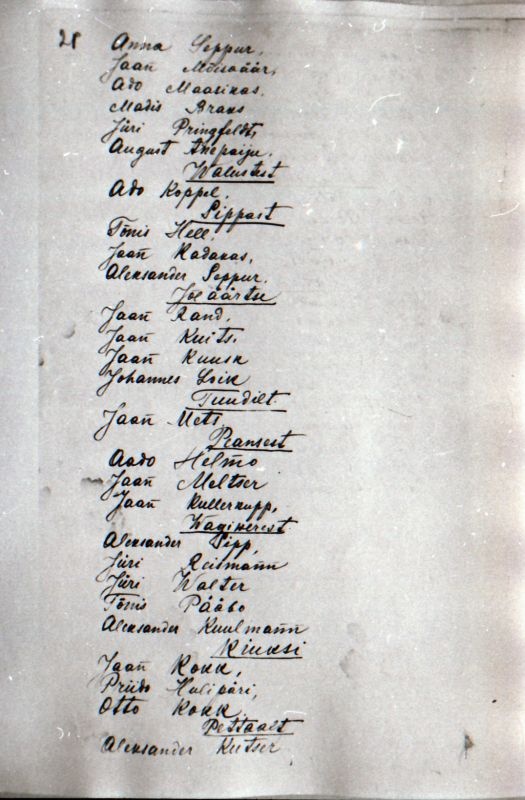 28
Anna Seppur,
Jaan̄ Mõisaäär,
Ado Maasikas,
Madis Braks
Jüri Pringfeldt,
August Anepaiju.
Walustest
Ado Koppel,
Pippast
Tõnis Hell,
Jaan̄ Kadakas,
Aleksander Seppur.
Joeäärtse
Jaan̄ Rand,
Jaan̄ Kuits.
Jaan̄ Kuusk
Johannes Loik
Tuudilt.
Jaan̄ Mets,
Peansest
Aado Helmo
Jaan̄ Meltser
Jaan̄ Kullerkupp,
Wagiwerest.
Aleksander Pipp,
Jüri Reisman̄n
Jüri Walter
Tõnis Pääbo
Aleksander Kuulman̄n
Kiuksi
Jaan̄ Kokk,
Priido Hulipäri,
Otto Kokk
Pettaalt
Aleksander Keitser